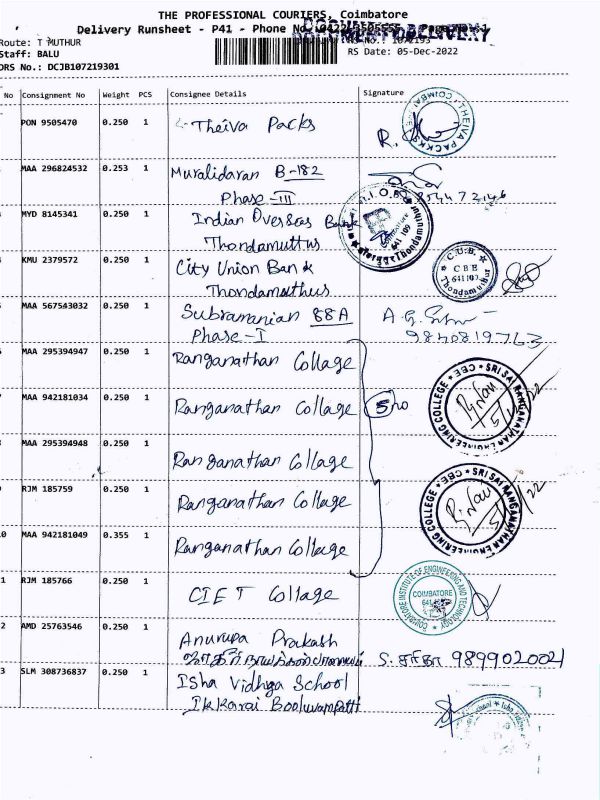 THE PROFESSIONAL COURIERS, Coimbatore
Delivery Runsheet - P41 - Phone No
Route: T MUTHUR
Staff: BALU
RS Date: 05-Dec-2022
DRS No.: DCJB107219301
No Consignment No Weight PCS Consignee Details Signature
PON 9505470 0.250 1 Theiva Packs
MAA 296824532 0.253 1 Muralidaran B-182
Phase-III
MYD 8145341 0.250 1 Indian Overseas Bank
Thondamuttus
KMU 2379572 0.250 1 City Union Bank
Thondamuthus
MAA 567543032 0.250 1 Subramanian 88A
Phase-I 9840819763
MAA 295394947 0.250 1 Ranganathan Collage
MAA 942181034 0.250 1 Ranganathan Collage 5 no
MAA 295394948 0.250 1 Ranganathan Collage
RJM 185759 0.250 1 Ranganathan Collage
MAA 942181049 0.355 1 Ranganathan Collage
RJM 185766 0.250 1 CIET Collage
AMD 25763546 0.250 1 Anurupa Prakash
9899020021
SLM 308736837 0.250 1 Isha Vidhya School
Ikkarai Booluvampatti
THEIVA PACKS COIMBA
Thondamuthur
C.U.B.
CBE
641109
Thondamuthur
SRI SAI RANGANATHAN ENGINEERING COLLEGE CBE
SRI SAI RANGANATHAN ENGINEERING COLLEGE CBE
COIMBATORE INSTITUTE OF ENGINEERING AND TECHNOLOGY
COIMBATORE